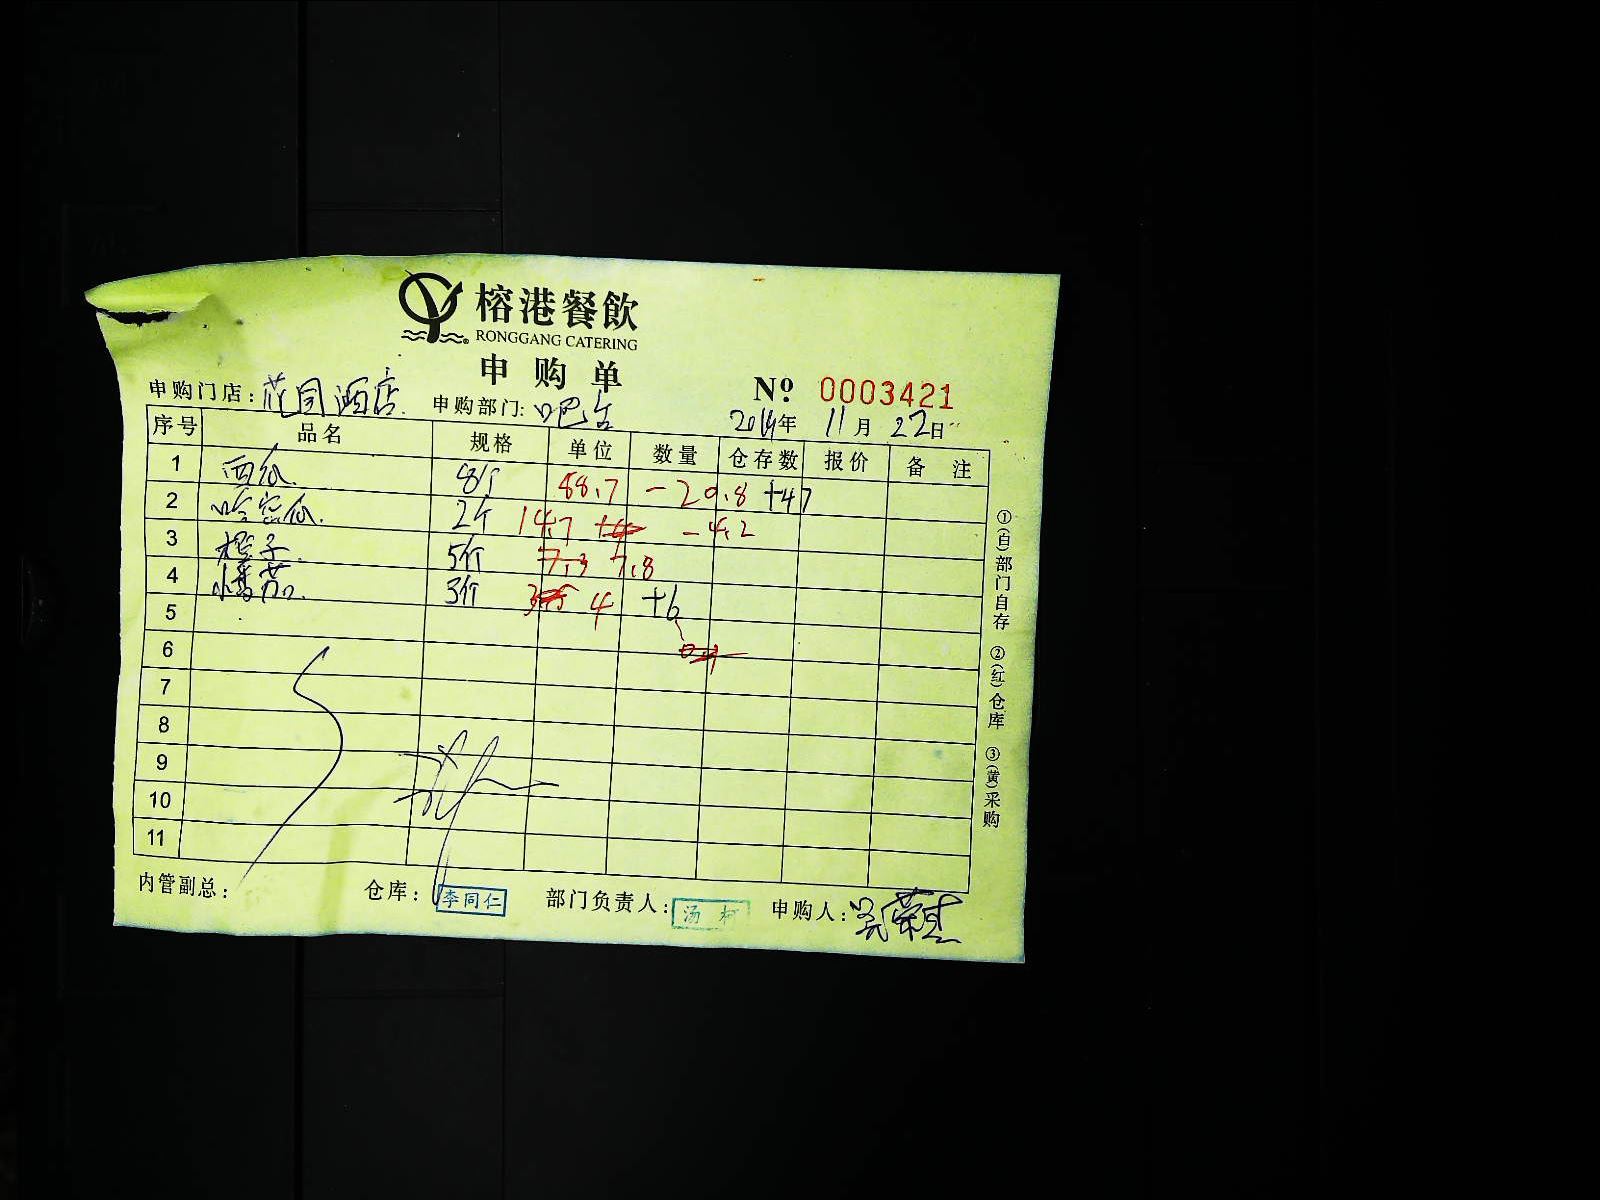 榕港餐飲
RONGGANG CATERING
申购单
№ 0003421
申购门店: 花园酒店 申购部门: 吧台 2014年 11月 22日
序号 品名 规格 单位 数量 仓存数 报价 备注
1 西瓜 8个 58.7 -20.8 +47
2 哈密瓜 2个 14.7 -4.2
3 橙子 5斤 7.3 7.8
4 小番茄 3斤 4 +6
5
6
7
8
9
10
11
①(白)部门自存 ②(红)仓库 ③(黄)采购
内管副总: 仓库: 李同仁 部门负责人: 汤柯 申购人: 吴荣杰